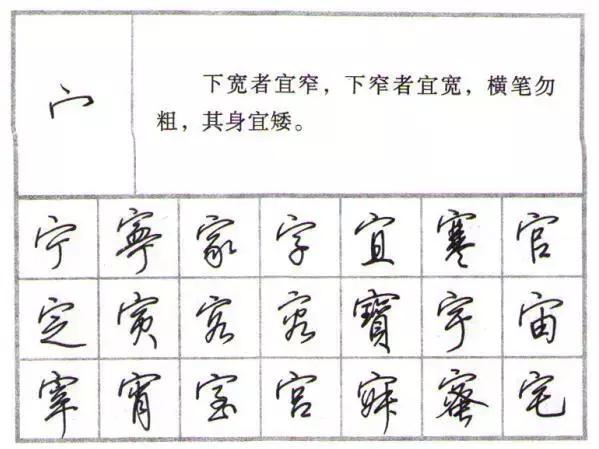 宀
下宽者宜窄，下窄者宜宽，横笔勿
粗，其身宜矮。
宁 寧 家 字 宜 寒 官
定 寅 客 寶 宇 宙
宰 宵 宫 寐 蜜 宅